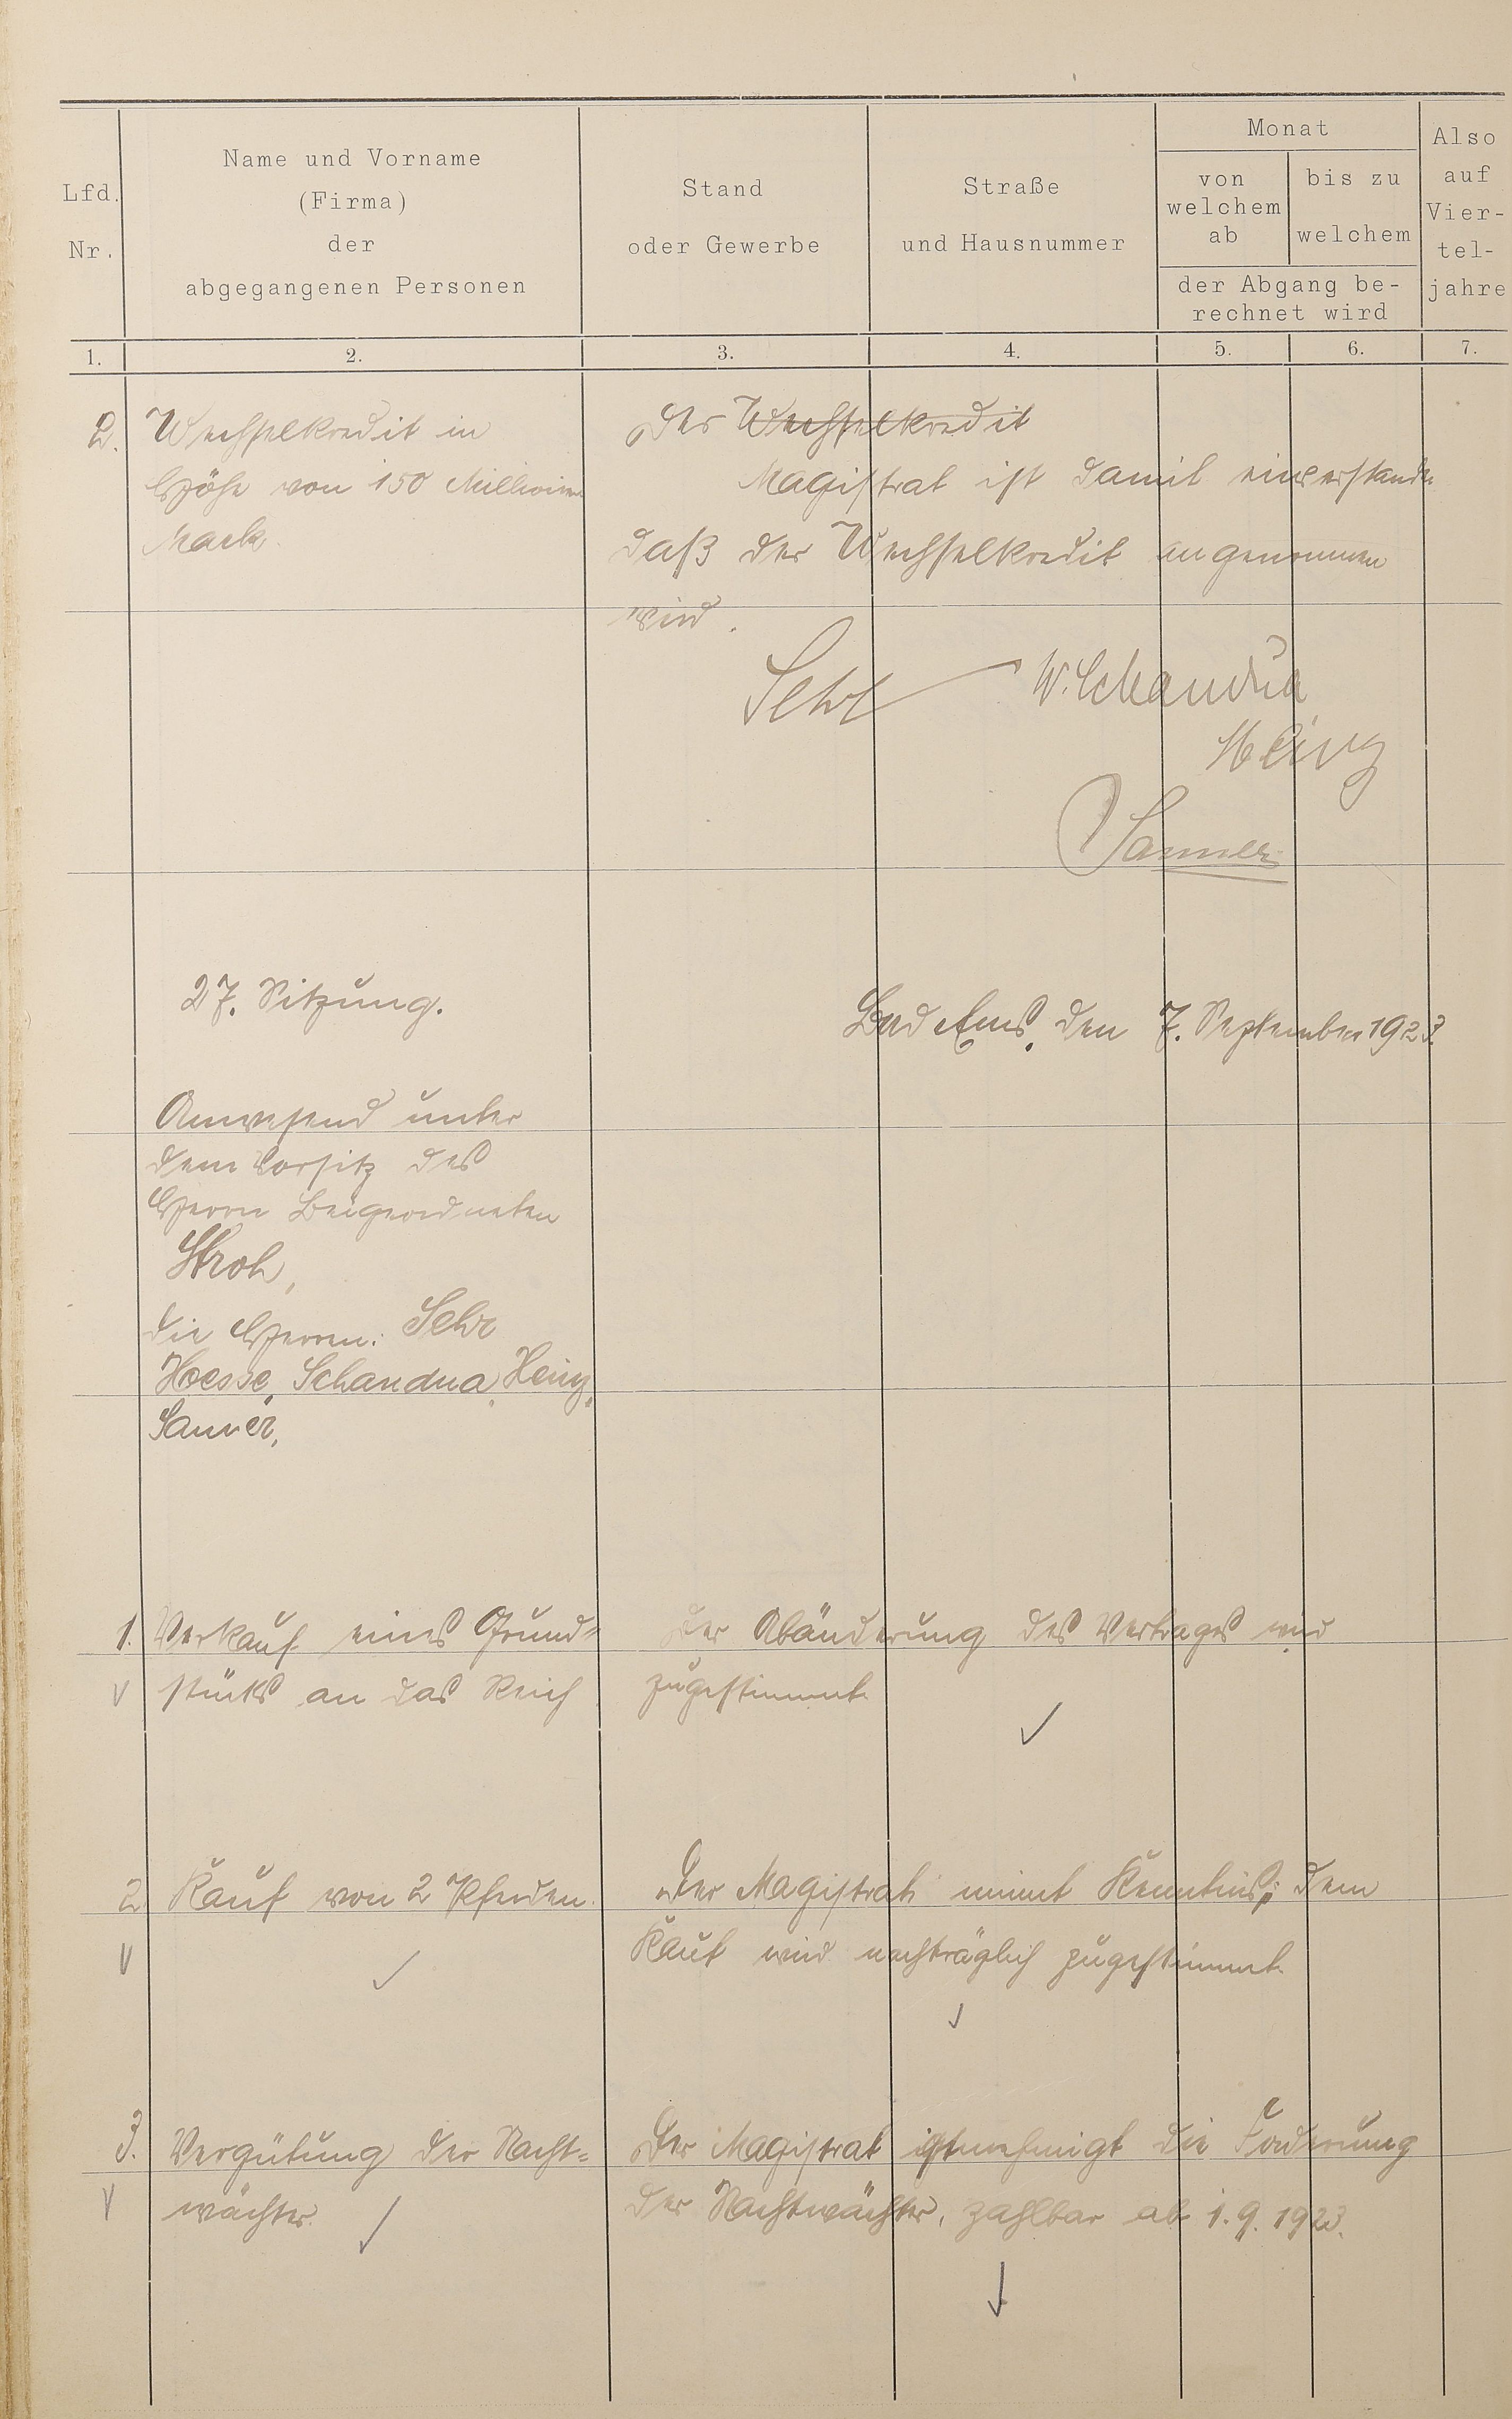 Lfd. Nr.
Name und Vorname
(Firma)
der
abgegangenen Personen
Stand
oder Gewerbe
Straße
und Hausnummer
Monat
von
welchem
ab
bis zu
welchem
der Abgang be-
rechnet wird
Also
auf
Vier-
tel-
jahre
1. 2. 3. 4. 5. 6. 7.
2. Wechselkredit in
Höhe von 150 Millionen
Mark.
Der Wechselkredit
Magistrat ist damit einverstanden
daß der Wechselkredit angenommen
wird.
Sehr W. Schandua
Heinz
Sanner
27. Sitzung.
Bad Ems, den 7. September 1923.
Anwesend unter
dem Vorsitz des
Herrn Beigeordneten
Stroh,
die Herren: Sehr
Hoesse, Schandua, Heinz,
Sanner,
1. Verkauf eines Grund=
V stücks an das Reich
Der Abänderung des Vertrages wird
zugestimmt.
2. Kauf von 2 Pferden.
V
Der Magistrat nimmt Kenntnis; dem
Kauf wird nachträglich zugestimmt.
3. Vergütung der Nacht=
V wächter.
Der Magistrat die Forderung
der Nachtwächter, zahlbar ab 1.9.1923.